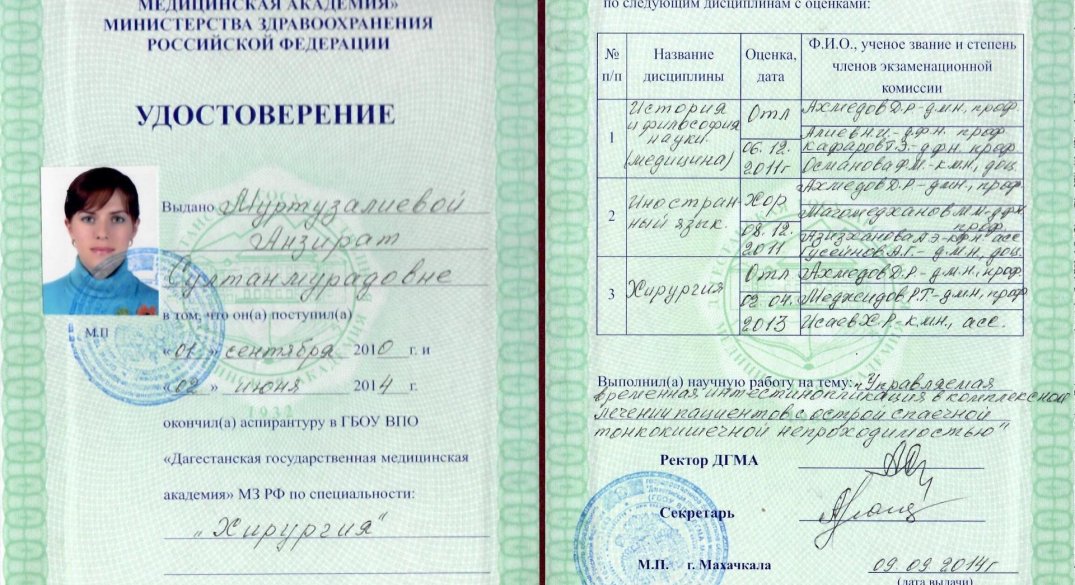 МЕДИЦИНСКАЯ АКАДЕМИЯ»
МИНИСТЕРСТВА ЗДРАВООХРАНЕНИЯ
РОССИЙСКОЙ ФЕДЕРАЦИИ
УДОСТОВЕРЕНИЕ
Выдано Муртузалиевой
Анзират
Султанмурадовне
в том, что он(а) поступил(а)
М.П
«01» сентября 2010 г. и
«02» июня 2014 г.
1932
окончил(а) аспирантуру в ГБОУ ВПО
«Дагестанская государственная медицинская
академия» МЗ РФ по специальности:
„Хирургия"
по следующим дисциплинам с оценками:
№ п/п
Название дисциплины
Оценка, дата
Ф.И.О., ученое звание и степень
членов экзаменационной
комиссии
1
История
и философия
науки
(медицина)
Отл
06.12.
2011г
Ахмедов Д.Р-д.м.н, проф.
Алиев Н.И.-д.ф.н. проф
Кафаров Т.Э.-д.ф.н. проф
Османова Ф.М.-к.м.н, доц.
2
Иностран-
ный язык.
Хор
08.12.
2011
Ахмедов Д.Р-дмн, проф.
Магомедханов М.М-дфн
проф
Азизханова А.Э-кфн. асс
Гусейнов А.Г.-д.м.н, доц.
3
Хирургия
Отл
02 04.
2013
Ахмедов Д.Р-д.м.н, проф.
Меджидов Р.Т-дмн, проф
Исаев Х.Р-к.мн., асс.
Выполнил(а) научную работу на тему: „Управляемая
временная интестинопликация в комплексном
лечении пациентов с острой спаечной
тонкокишечной непроходимостью"
Ректор ДГМА
Секретарь
М.П. г. Махачкала 09.09.2014г
(дата выдачи)